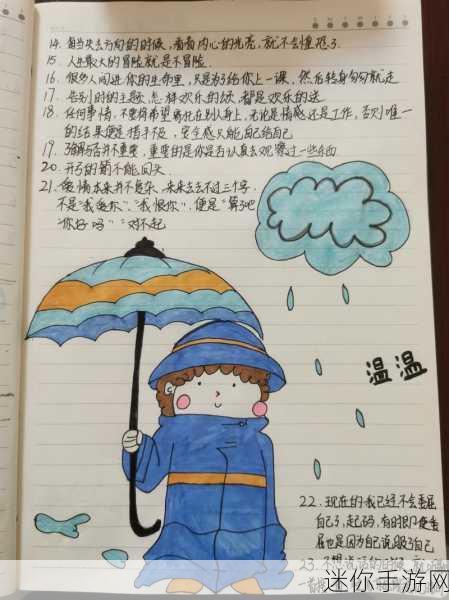 14. 每当失去方向的时候，看看内心的光亮，就不会惶恐了.
15. 人生最大的冒险就是不冒险.
16. 很多人闯进你的生命里，只是为了给你上一课，然后转身匆匆就走
17. 告别时的主题，怎样欢乐的放，都是欢乐的送
18. 任何事情，不要将希望寄托在别人身上，无论是情感还是工作，否则唯一
的结果便是措手不及，安全感只能自己给自己
19. 理解与否并不重要，重要的是你是否认真去观察过一些东西
20. 开弓的箭不能回头
21. 爱情本来并不复杂，来来去去不过三个字，
不是"我爱你"、"我恨你"，便是"算了吧
"你好吗""对不起
温温
22. 现在的我已经不会委屈
自己了，起码，有时即便委
屈也是因为自己说服了自己
23. 不想说话的时候，
迷你手游网